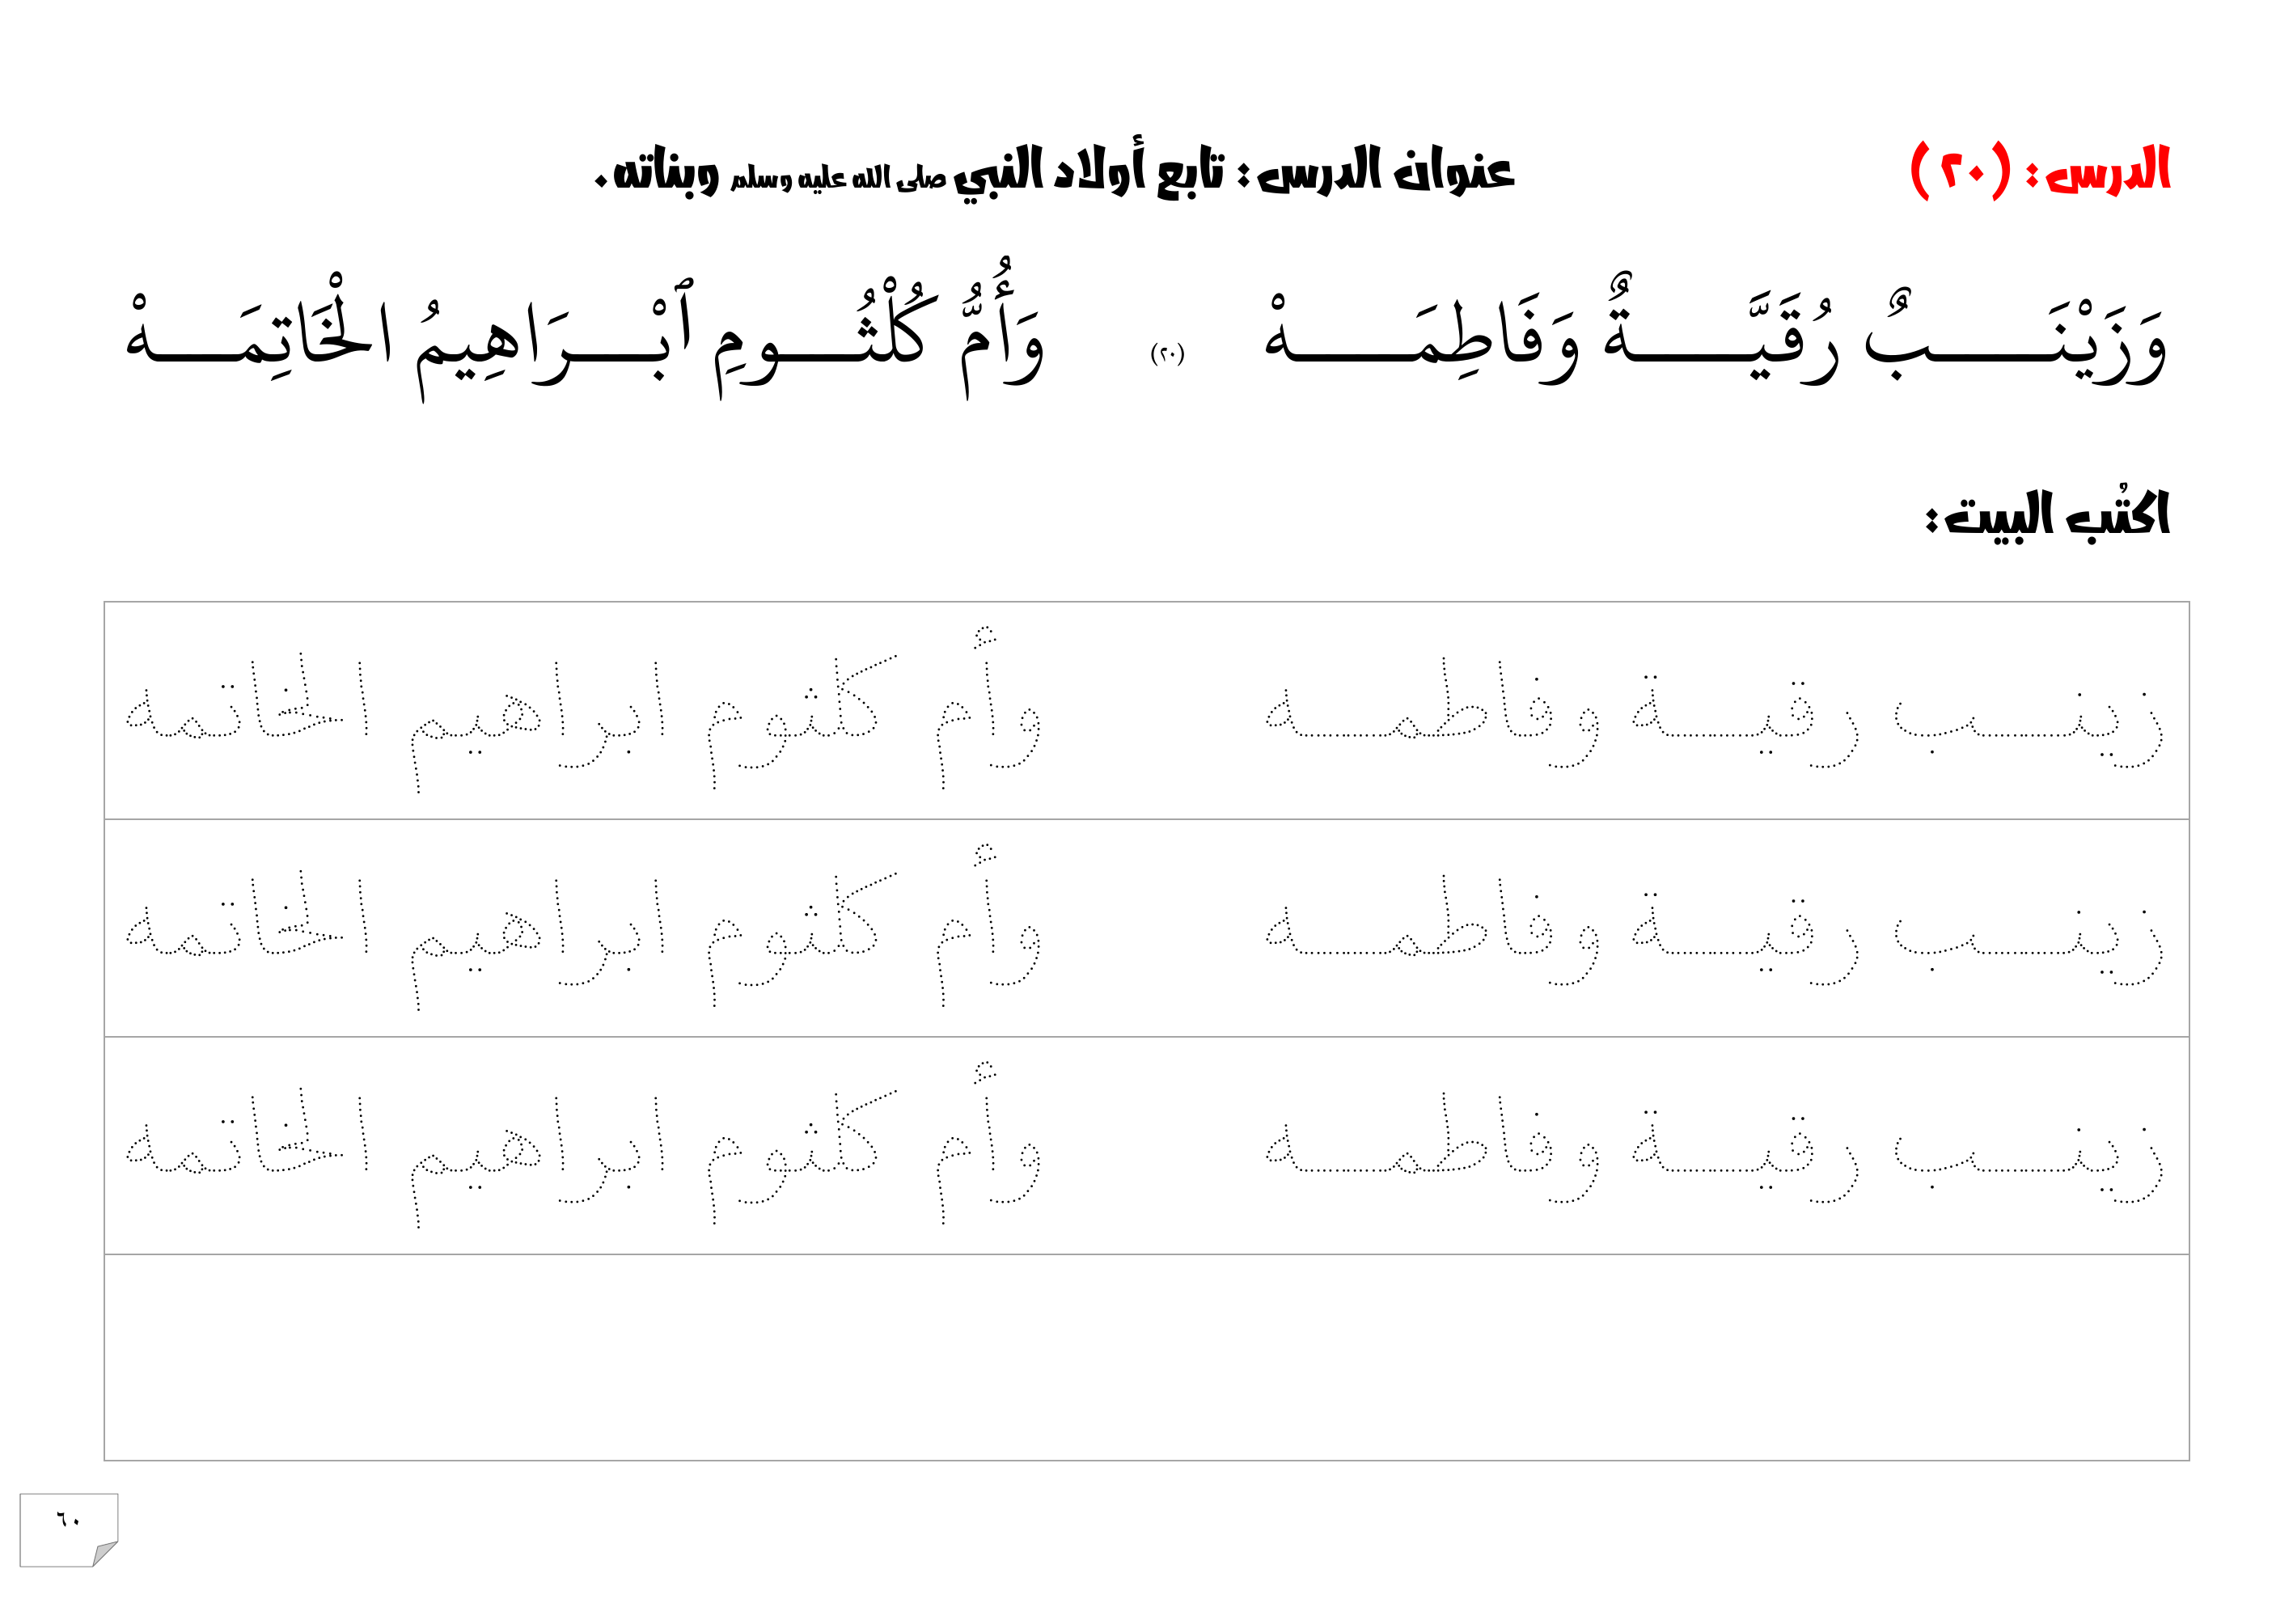 الدرس: (٢٠) عنوان الدرس: تابع أولاد النبي صلى الله عليه وسلم وبناته .
وَزَيْنَـــــبٌ رُقَيَّـــــةٌ وَفَاطِمَـــــهْ (٢٠) وَأُمُّ كُلْثُـــــومِ ٱبْـــــرَاهِيمُ الْخَاتِمَـــــهْ
اكتُب البيت :
زينـــب رقيـــة وفاطمـــه وأم كلثوم ابراهيم الخاتمه
زينـــب رقيـــة وفاطمـــه وأم كلثوم ابراهيم الخاتمه
زينـــب رقيـــة وفاطمـــه وأم كلثوم ابراهيم الخاتمه
٦٠